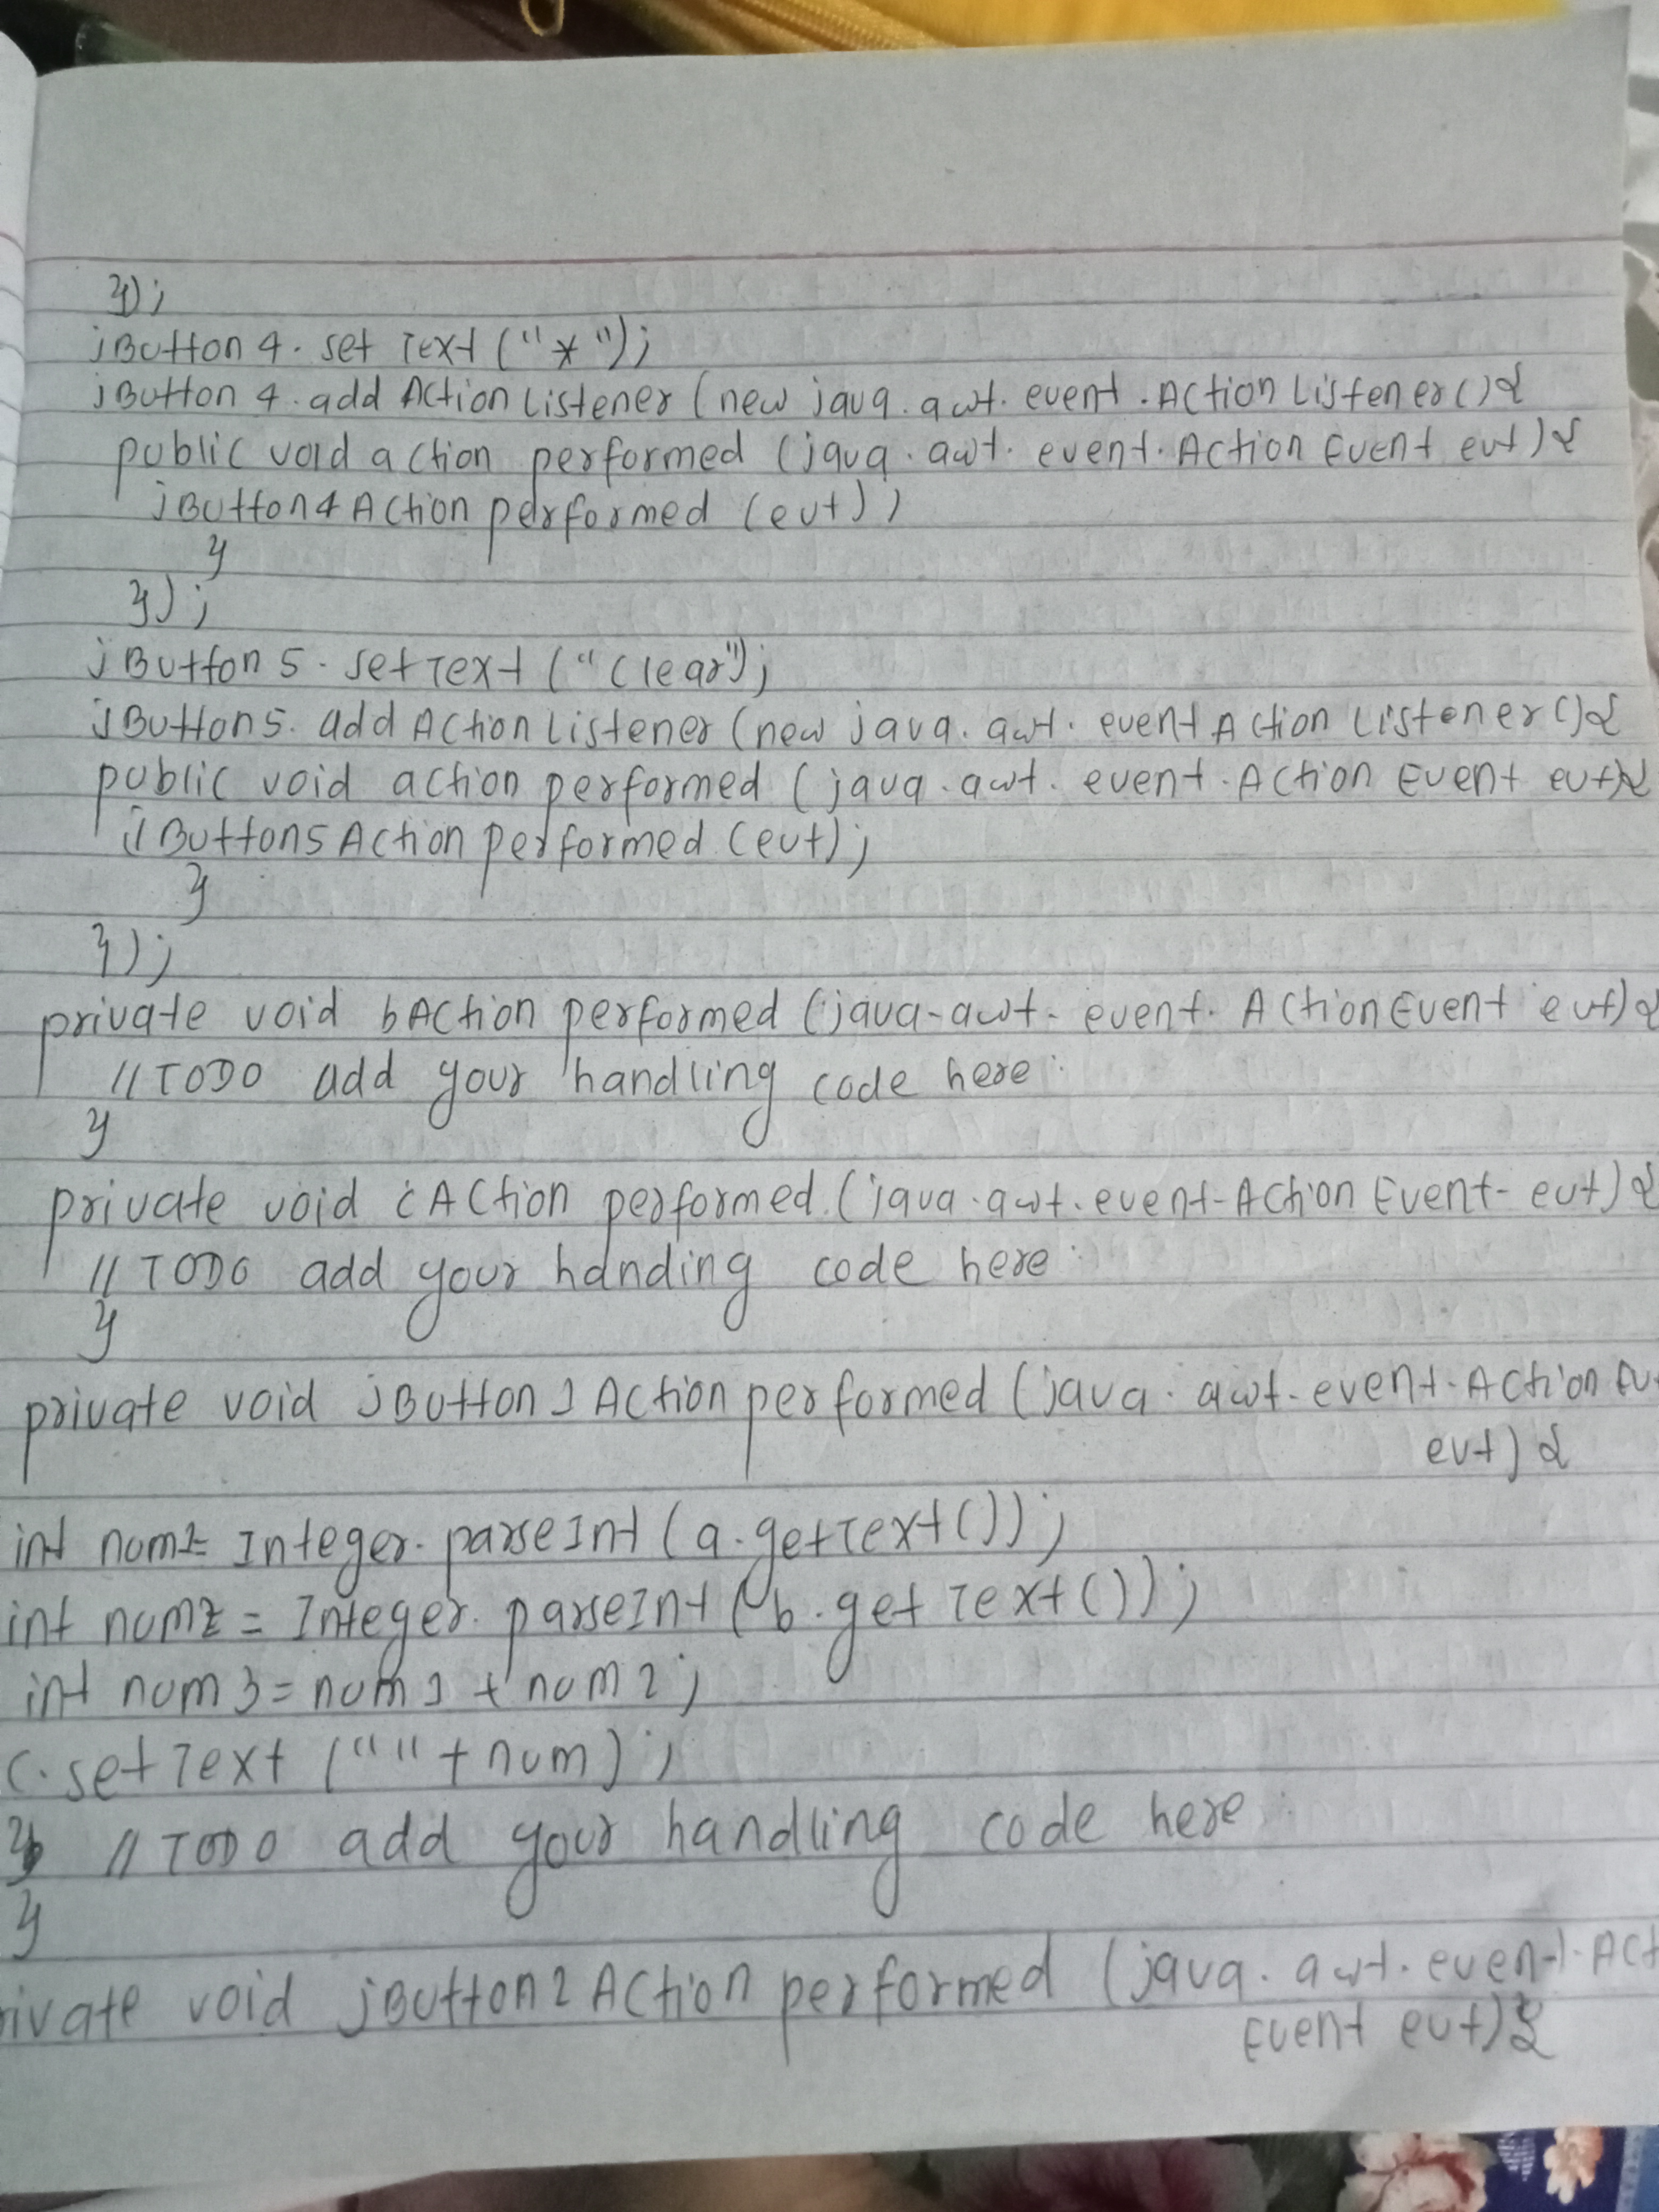 });
jButton 4. set Text ("*");
jButton 4. add Action Listener (new java. awt. event .Action Listener(){
public void action performed (java. awt. event. Action Event evt){
jButton4 Action performed (evt);
}
});
jButton 5. setText ("Clear");
jButton5. add Action Listener (new java. awt. event Action Listener(){
public void action performed (java. awt. event. Action Event evt){
jButton5 Action performed (evt);
}
});
private void bAction performed (java-awt- event. ActionEvent evt){
//TODO add your handling code here:
}
private void cAction performed. (java.awt.event-Action Event- evt){
//TODO add your handing code here:
}
private void jButton1 Action performed (java. awt-event-Action Ev
evt){
int num1= Integer. parseInt (a.getText());
int num2 = Integer. parseInt (b.get Text());
int num 3= num 1 + num 2;
c.set Text (" " + num);
} // TODO add your handling code here:
}
rivate void jButton 2 Action performed (java. awt. event. Act
Event evt){